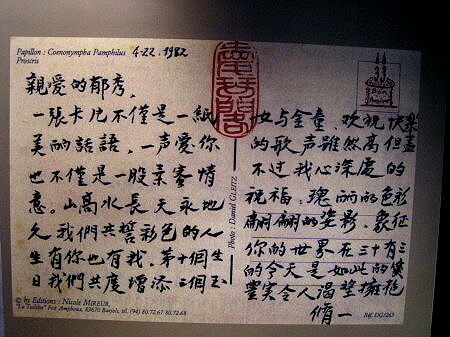 Papillon : Coenonympha Pamphilus 4-22, 1982
親愛的郁秀,
一張卡片不僅是一紙
美丽話語,一声愛你
也不僅是一股柔蜜情
意。山高水長天永地
久我們共誓彩色的人
生有你也有我。第十個生
日我們共度增添三個玉
© by Editions : Nicole MIREUR,
Fox Amphoux, 83670 Barjols. tél. (94) 80.72.67 80.72.68
Photo : Daniel GLEITZ
33
女与金童,欢祝快樂
的歌声雖然高但盖
不过我心深處的
祝福,瑰丽的色彩
翩翩的姿影,象征
你的世界在三十有三
的今天是如此的
豐实令人渴望擁抱
脩一
Réf. DG/263